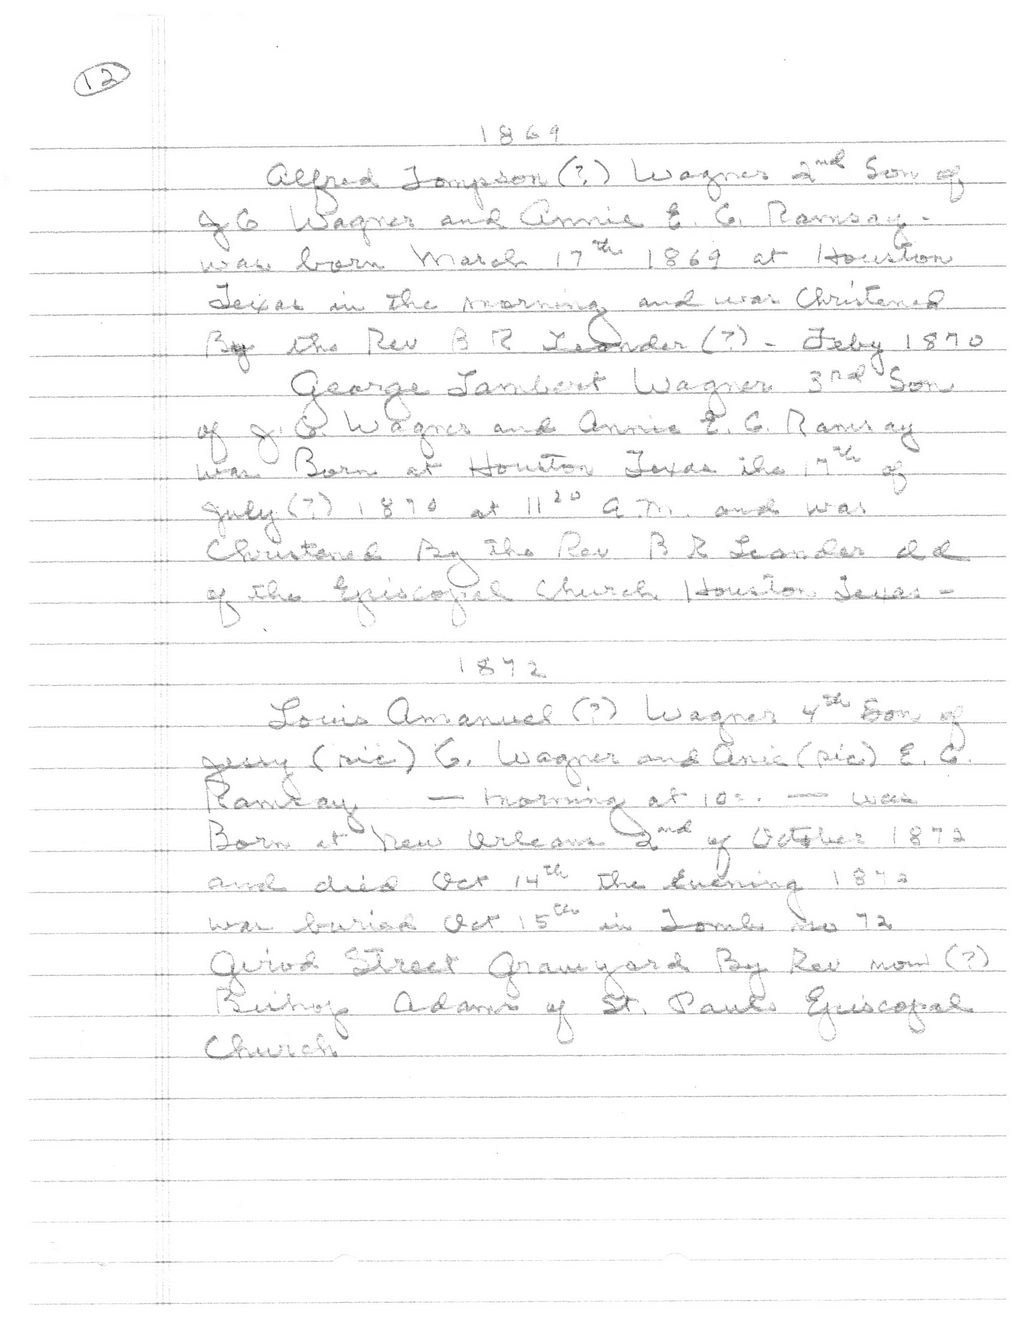 12
1869
Alfred Tompson (?) Wagner 2nd Son of
J G Wagner and Annie E. G. Ramsay -
was born March 17th 1869 at Houston
Texas in the morning and was Christened
By the Rev B R Leonder (?) - Feby 1870
George Lambert Wagner 3rd Son
of J. G. Wagner and Annie E. G. Ramsay
was Born at Houston Texas the 17th of
July (?) 1870 at 11 20 A.M. and was
Christened By the Rev B R Leonder dd
of the Episcopal Church Houston Texas -
1872
Louis Amanuel (?) Wagner 4th Son of
Jessy (sic) G. Wagner and Anie (sic) E. G.
Ramsay — morning at 10 — was
Born at New Orleans 2nd of October 1872
and died Oct 14th the Evening 1872
was buried Oct 15th in Tomb no 72
Girod Street Graveyard By Rev now (?)
Bishop Adams of St. Pauls Episcopal
Church